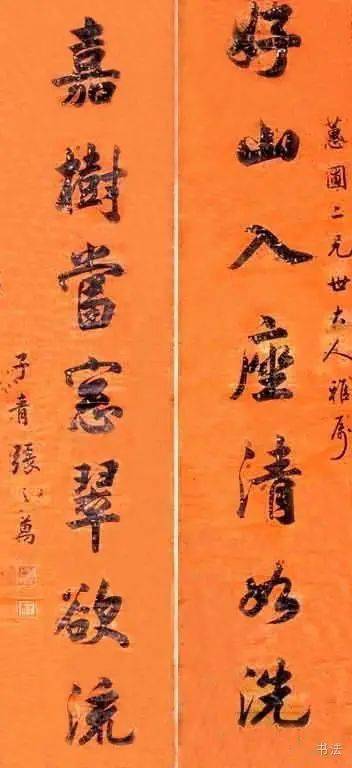 蕙圃二兄世大人雅属
好山入座清如洗
嘉樹當窓翠欲流
子青張之萬
书法